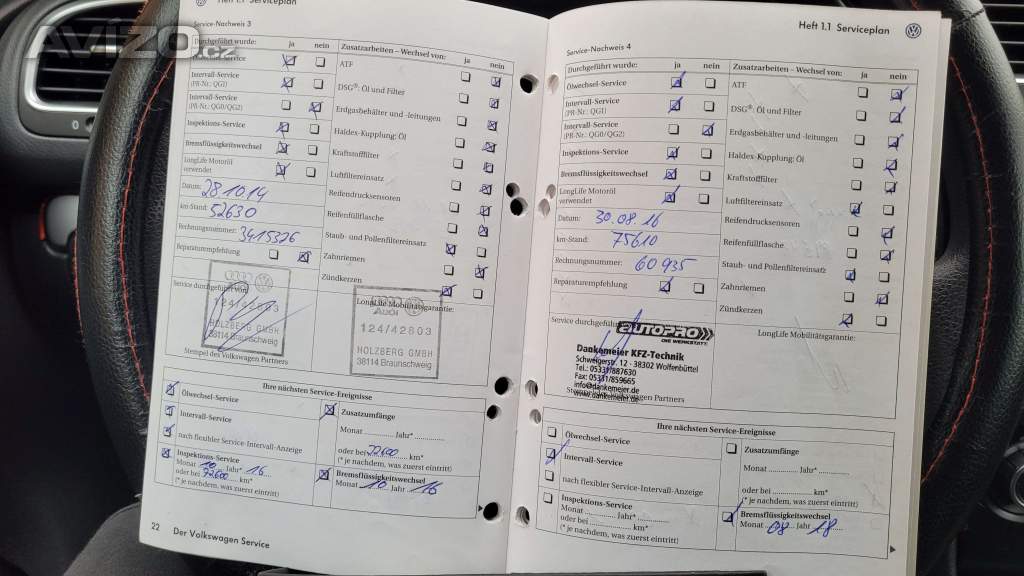 AVIZO.cz
Heft 1.1 Serviceplan
Service-Nachweis 3
Durchgeführt wurde: ja nein
Ölwechsel-Service
Intervall-Service
(PR-Nr.: QG1)
Intervall-Service
(PR-Nr.: QG0/QG2)
Inspektions-Service
Bremsflüssigkeitswechsel
LongLife Motoröl
verwendet
Datum: 28.10.14
km-Stand: 52630
Rechnungsnummer: 3415326
Reparaturempfehlung
Zusatzarbeiten – Wechsel von: ja nein
ATF
DSG®: Öl und Filter
Erdgasbehälter und -leitungen
Haldex-Kupplung: Öl
Kraftstofffilter
Luftfiltereinsatz
Reifendrucksensoren
Reifenfüllflasche
Staub- und Pollenfiltereinsatz
Zahnriemen
Zündkerzen
Service durchgeführt von:
124/42803
HOLZBERG GMBH
38114 Braunschweig
Stempel des Volkswagen Partners
LongLife Mobilitätsgarantie:
Audi
124/42803
HOLZBERG GMBH
38114 Braunschweig
Ihre nächsten Service-Ereignisse
Ölwechsel-Service
Intervall-Service
nach flexibler Service-Intervall-Anzeige
Inspektions-Service
Monat 10 Jahr* 16
oder bei 72600 km*
(* je nachdem, was zuerst eintritt)
Zusatzumfänge
Monat Jahr*
oder bei 72600 km*
(* je nachdem, was zuerst eintritt)
Bremsflüssigkeitswechsel
Monat 10 Jahr 16
22 Der Volkswagen Service
Heft 1.1 Serviceplan
Service-Nachweis 4
Durchgeführt wurde: ja nein
Ölwechsel-Service
Intervall-Service
(PR-Nr.: QG1)
Intervall-Service
(PR-Nr.: QG0/QG2)
Inspektions-Service
Bremsflüssigkeitswechsel
LongLife Motoröl
verwendet
Datum: 30.08.16
km-Stand: 75610
Rechnungsnummer: 60935
Reparaturempfehlung
Zusatzarbeiten – Wechsel von: ja nein
ATF
DSG®: Öl und Filter
Erdgasbehälter und -leitungen
Haldex-Kupplung: Öl
Kraftstofffilter
Luftfiltereinsatz
Reifendrucksensoren
Reifenfüllflasche
Staub- und Pollenfiltereinsatz
Zahnriemen
Zündkerzen
Service durchgeführt
AUTOPRO
DIE WERKSTATT
Dankemeier KFZ-Technik
Schweigerstr. 12 - 38302 Wolfenbüttel
Tel.: 05331/887630
Fax: 05331/859665
info@dankemeier.de
www.dankemeier.de
Stempel des Volkswagen Partners
LongLife Mobilitätsgarantie:
Ihre nächsten Service-Ereignisse
Ölwechsel-Service
Intervall-Service
nach flexibler Service-Intervall-Anzeige
Inspektions-Service
Monat Jahr*
oder bei km*
(* je nachdem, was zuerst eintritt)
Zusatzumfänge
Monat Jahr*
oder bei km*
(* je nachdem, was zuerst eintritt)
Bremsflüssigkeitswechsel
Monat 08 Jahr 18
Der Volkswagen Service 23